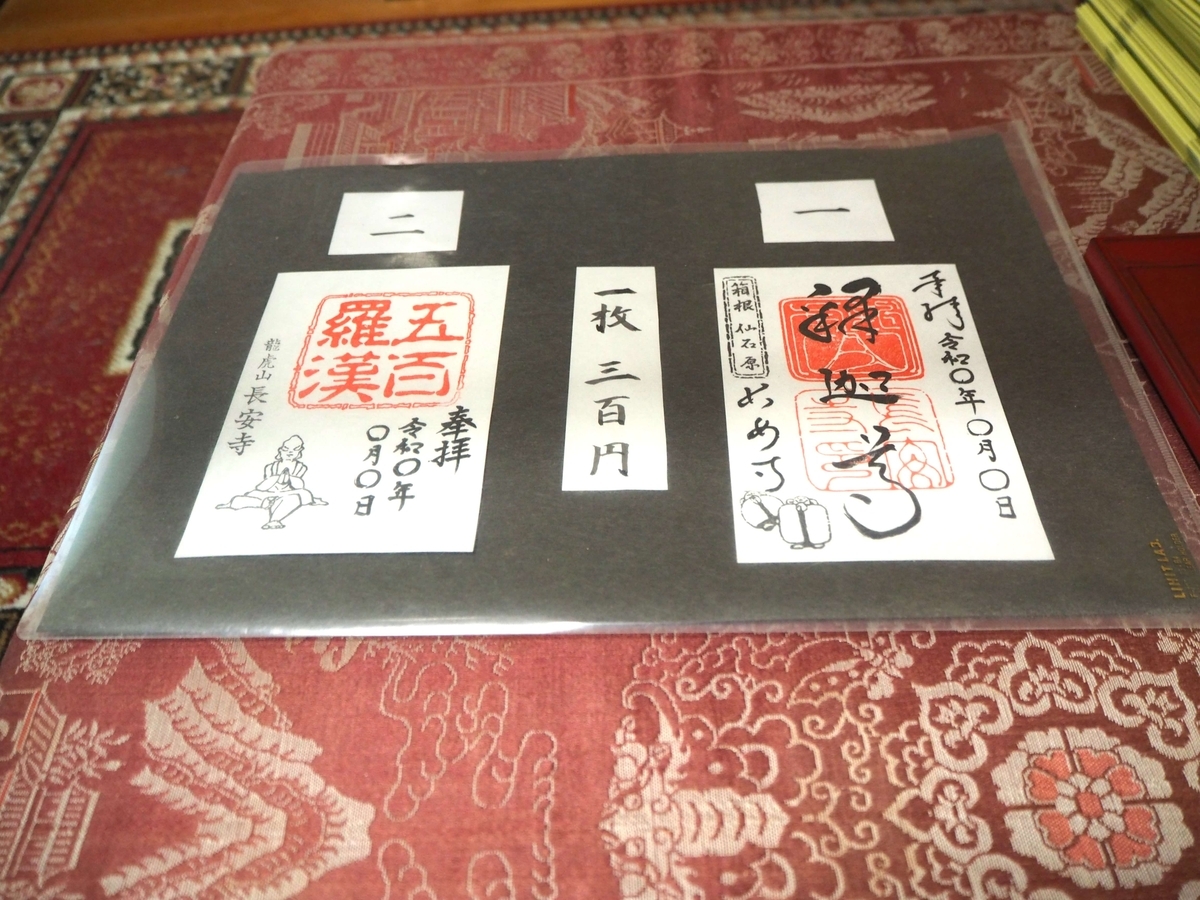 一
奉拝 令和〇年〇月〇日
釋迦尊
箱根仙石原
長安寺
一枚 三百円
二
五百
羅漢
奉拝
令和〇年
〇月〇日
龍虎山 長安寺
LIHIT LAB.